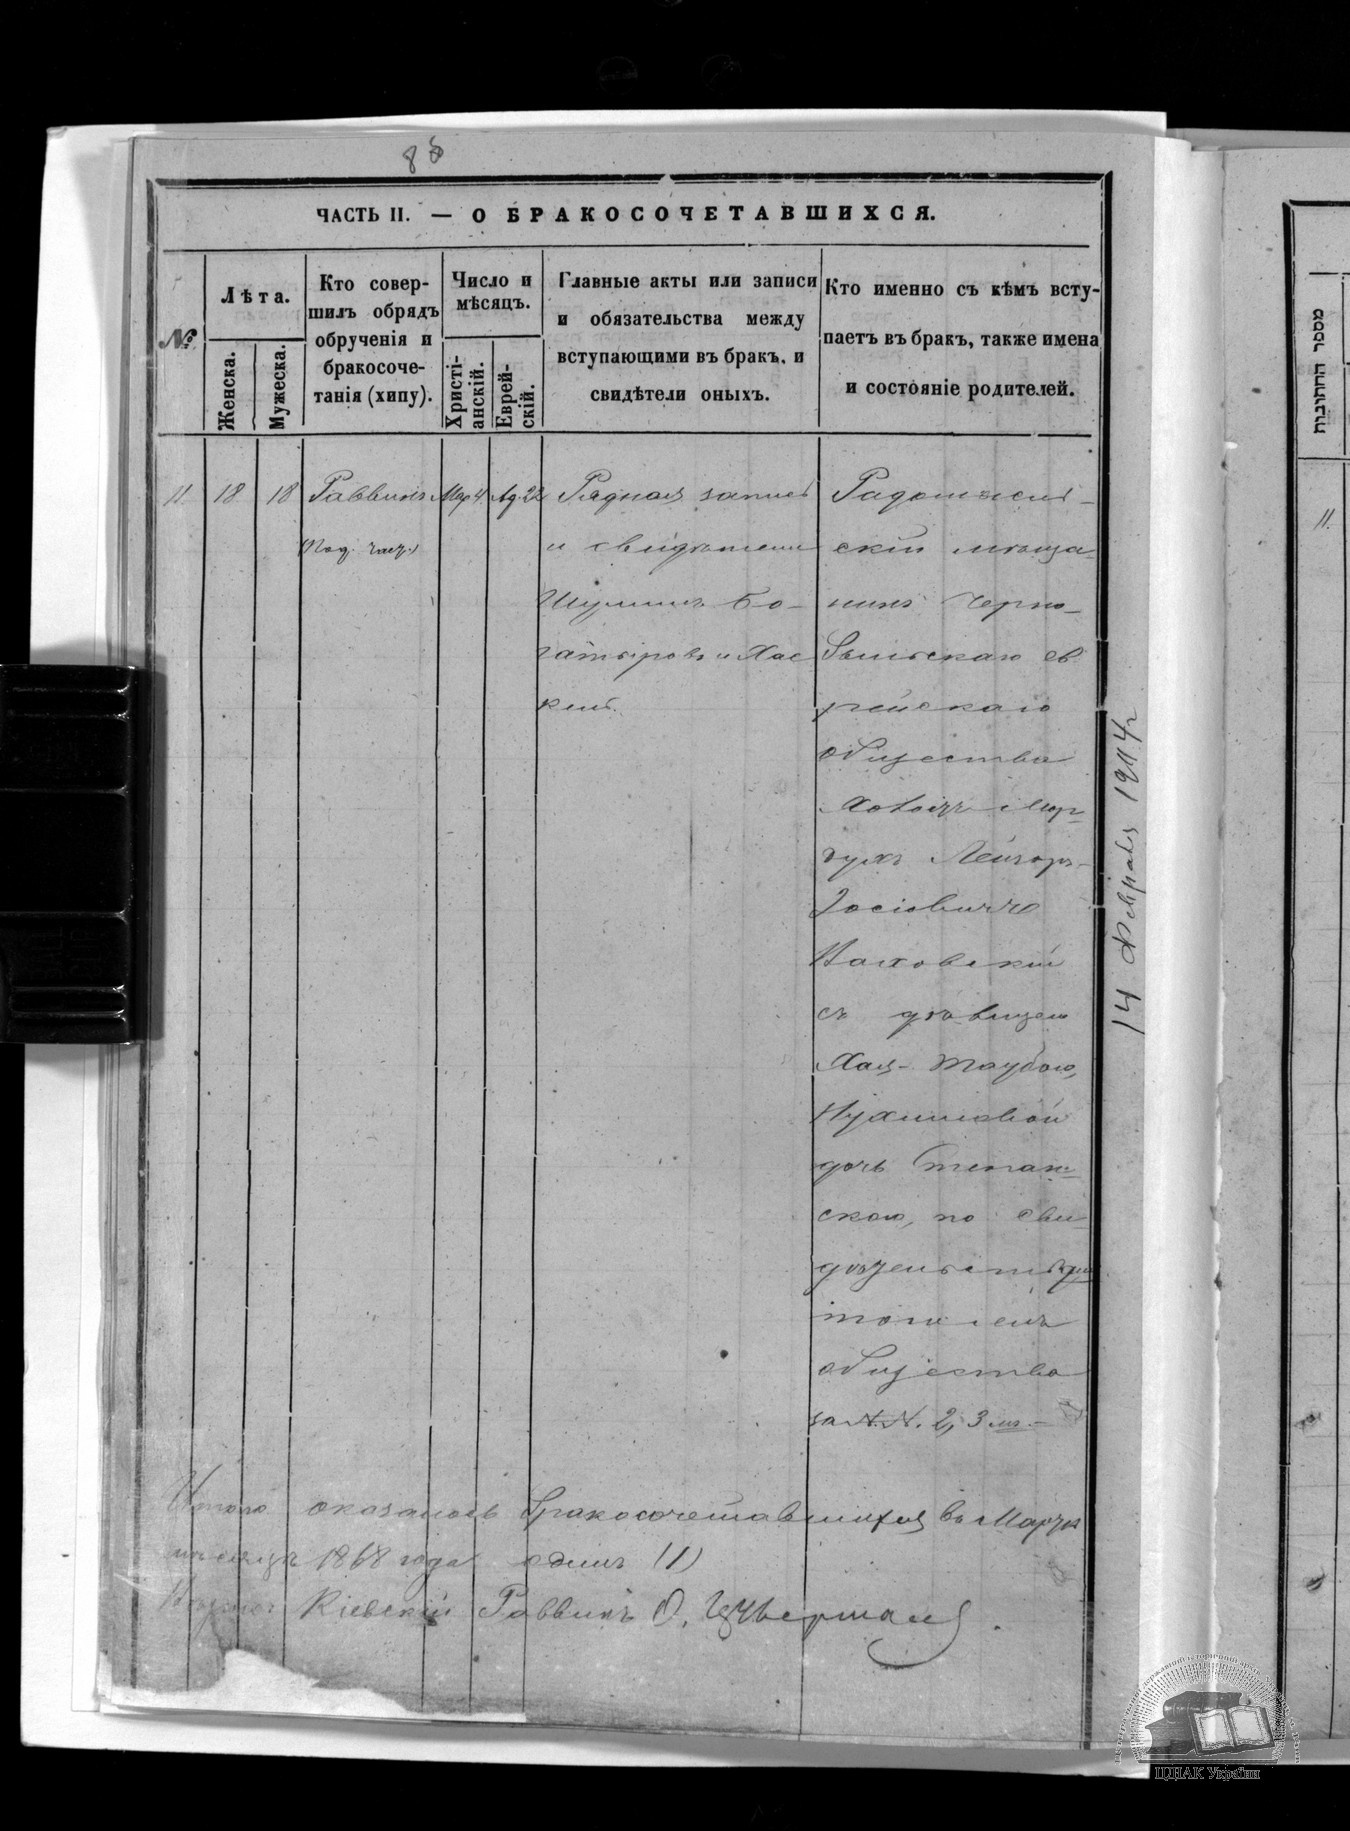 ЧАСТЬ II. — О БРАКОСОЧЕТАВШИХСЯ.
№
Лѣта.
Женска.
Мужеска.
Кто совер-
шилъ обрядъ
обрученія и
бракосоче-
танія (хипу).
Число и
мѣсяцъ.
Христі-
анскій.
Еврей-
скій.
Главные акты или записи
и обязательства между
вступающими въ бракъ, и
свидѣтели оныхъ.
Кто именно съ кѣмъ всту-
паетъ въ бракъ, также имена
и состояніе родителей.
11
18
18
Раввинъ
Мар 4
Ад. 22
Рядная запись
и свидѣтели
Шулимъ Бо-
гатыровъ и Хас
кель.
Радомысль-
скій мѣща-
нинъ Черно-
быльскаго ев
рейскаго
общества
Лейзоръ-
Іосіовичъ
съ дѣвицею
Хая-Таубою,
дочь Степан-
скою, по сви-
дѣтельств
того
общества
за N.N. 2, 3
Итого оказалось бракосочетавшихся въ Мартѣ
мѣсяцѣ 1868 года одинъ (1)
Кіевскій Раввинъ
14 Февраля 1914 г
מספר החתונות
11.
ЦДІАК України